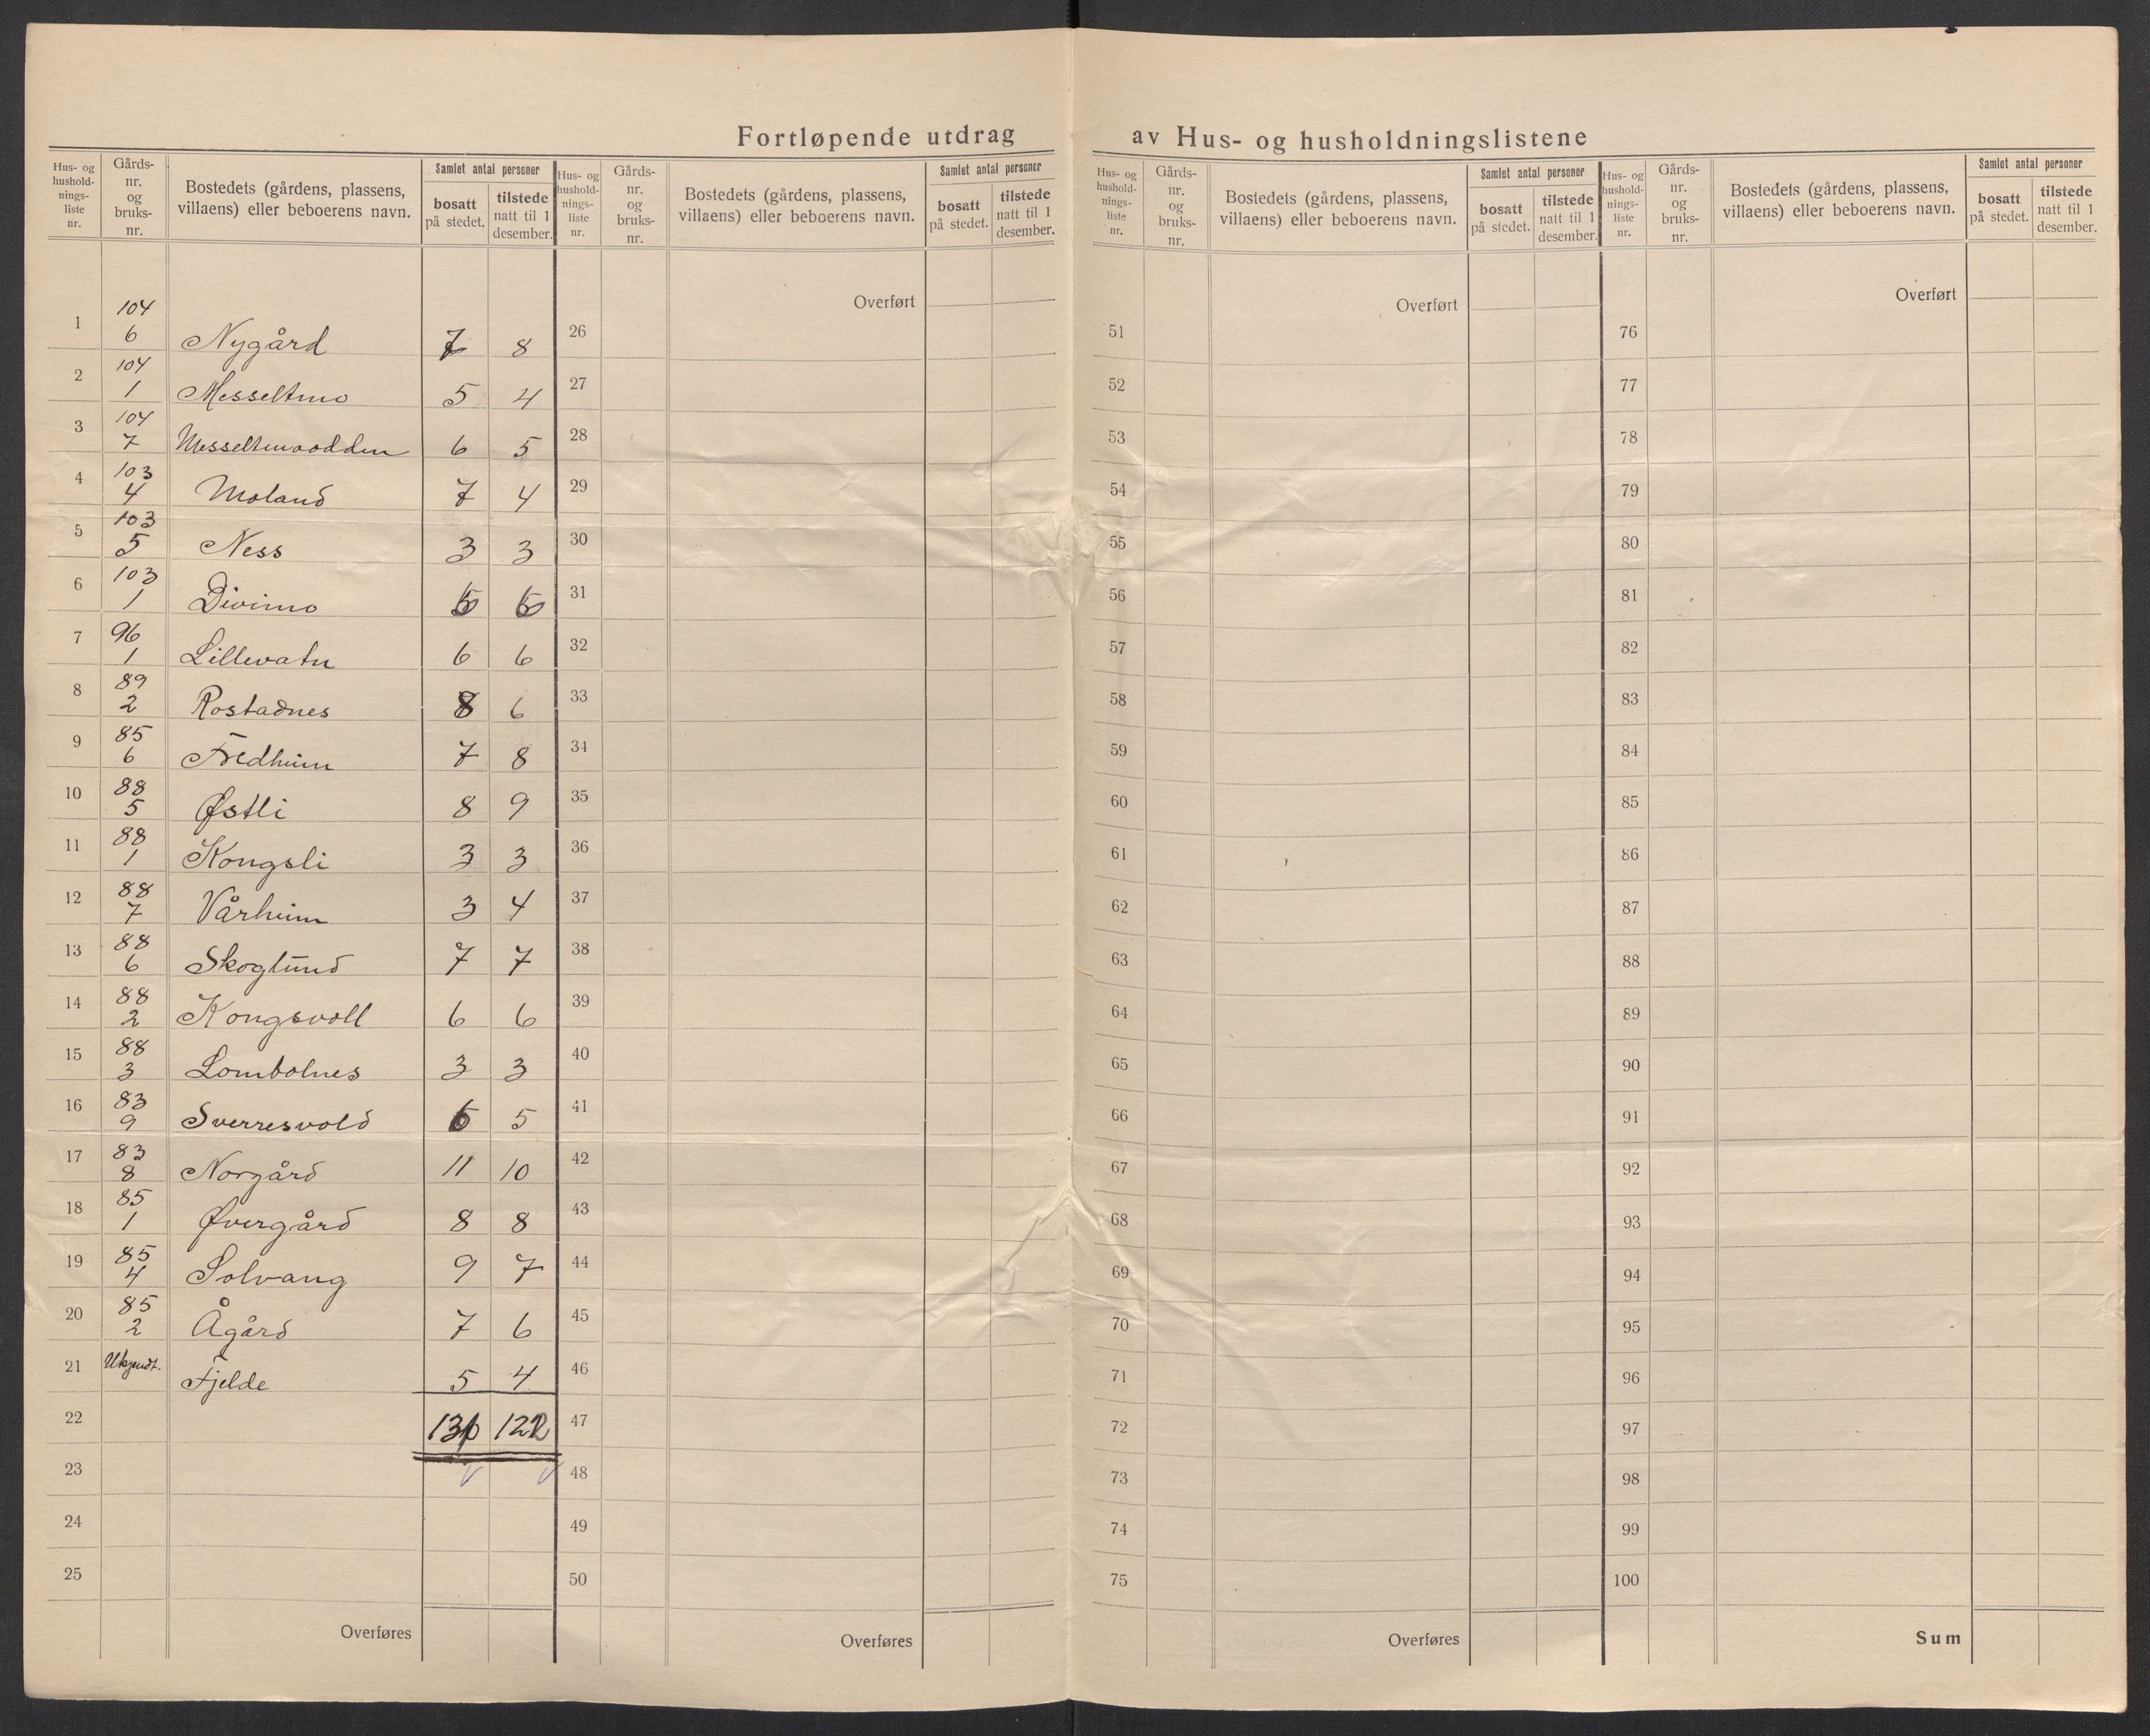 Fortløpende utdrag av Hus- og husholdningslistene
Hus- og hushold-nings-liste nr.
Gårds-nr. og bruks-nr.
Bostedets (gårdens, plassens, villaens) eller beboerens navn.
Samlet antal personer
bosatt på stedet.
tilstede natt til 1 desember.
Hus- og hushold-nings-liste nr.
Gårds-nr. og bruks-nr.
Bostedets (gårdens, plassens, villaens) eller beboerens navn.
Samlet antal personer
bosatt på stedet.
tilstede natt til 1 desember.
Hus- og hushold-nings-liste nr.
Gårds-nr. og bruks-nr.
Bostedets (gårdens, plassens, villaens) eller beboerens navn.
Samlet antal personer
bosatt på stedet.
tilstede natt til 1 desember.
Hus- og hushold-nings-liste nr.
Gårds-nr. og bruks-nr.
Bostedets (gårdens, plassens, villaens) eller beboerens navn.
Samlet antal personer
bosatt på stedet.
tilstede natt til 1 desember.
Overført Overført Overført
1 104 6 Nygård 7 8 26 51 76
2 104 1 Messeltmo 5 4 27 52 77
3 104 7 Messeltmoodden 6 5 28 53 78
4 103 4 Moland 7 4 29 54 79
5 103 5 Ness 3 3 30 55 80
6 103 1 Divimo 31 56 81
7 96 1 Lillevatn 6 6 32 57 82
8 89 2 Rostadnes 8 6 33 58 83
9 85 6 Fredheim 7 8 34 59 84
10 88 5 Østli 8 9 35 60 85
11 88 1 Kongsli 3 3 36 61 86
12 88 7 Vårheim 3 4 37 62 87
13 88 6 Skoglund 7 7 38 63 88
14 88 2 Kongsvoll 6 6 39 64 89
15 88 3 Lombolnes 3 3 40 65 90
16 83 9 Sverresvold 6 5 41 66 91
17 83 8 Norgård 11 10 42 67 92
18 85 1 Øvergård 8 8 43 68 93
19 85 4 Solvang 9 7 44 69 94
20 85 2 Ågård 7 6 45 70 95
21 Ukjendt. Fjelde 5 4 46 71 96
22 122 47 72 97
23 48 73 98
24 49 74 99
25 50 75 100
Overføres Overføres Overføres Sum